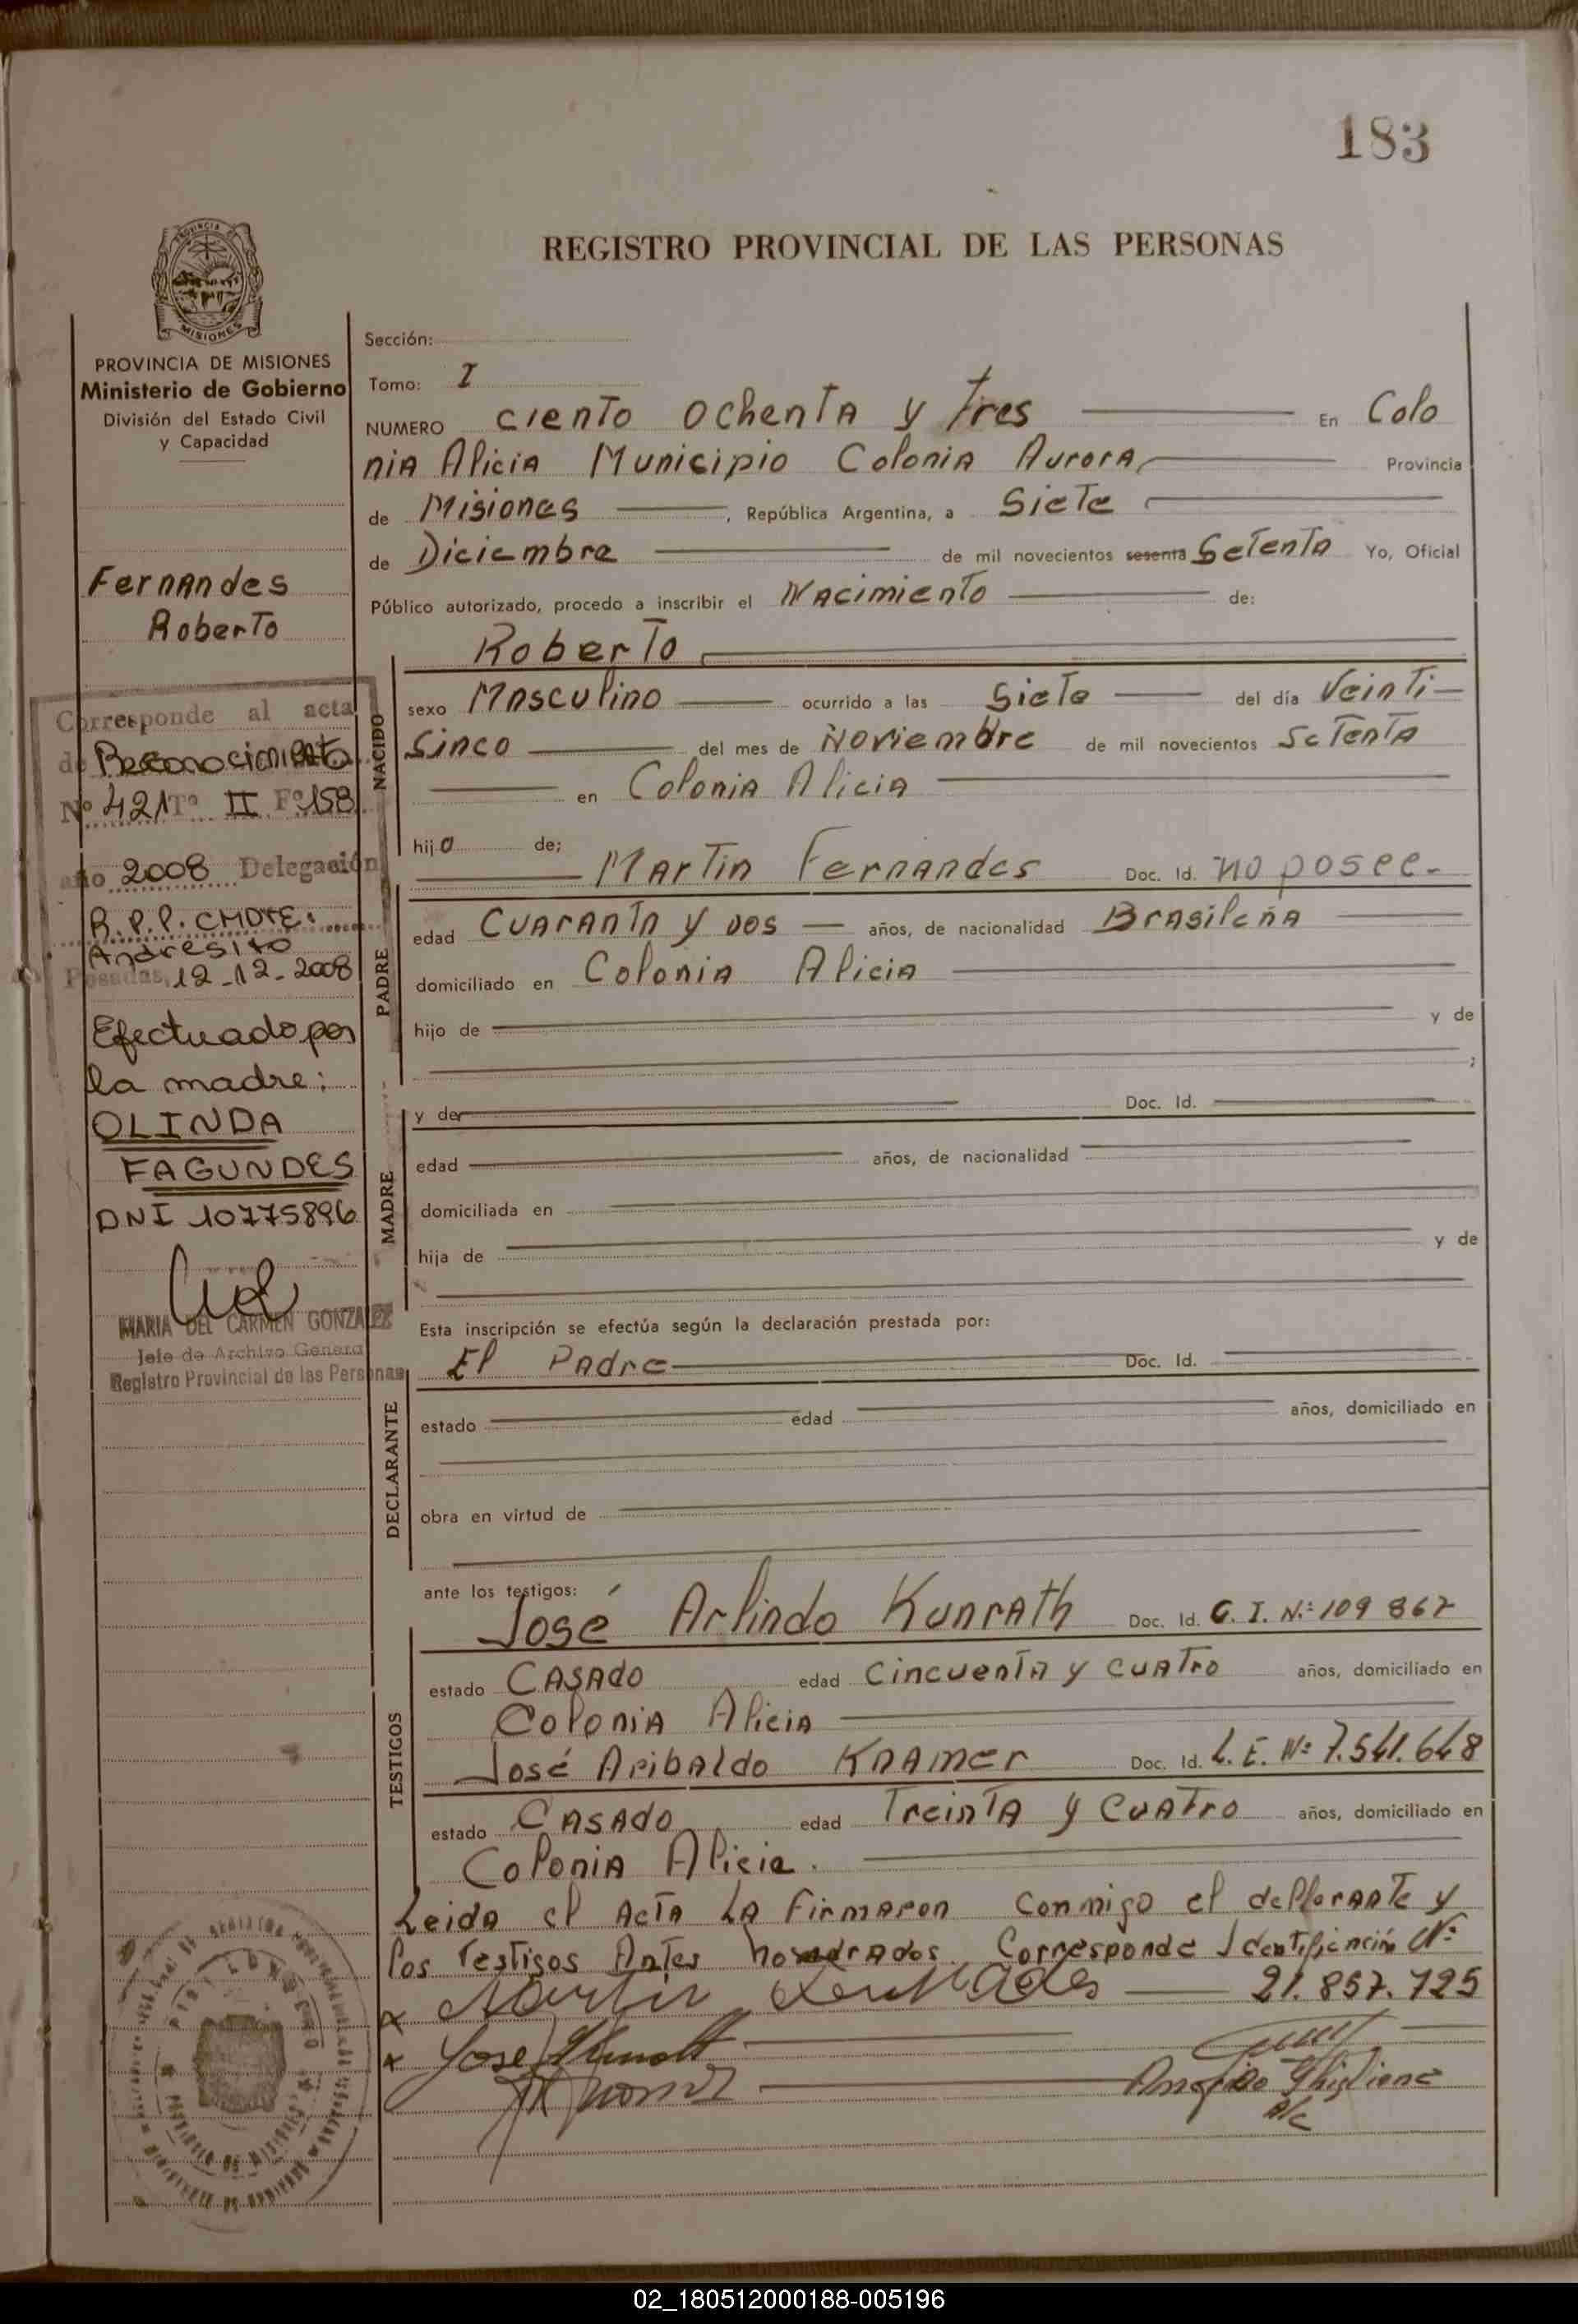 183
REGISTRO PROVINCIAL DE LAS PERSONAS
PROVINCIA DE MISIONES
Ministerio de Gobierno
División del Estado Civil
y Capacidad
Fernandes
Roberto
Corresponde al acta
de Reconocimiento
Nº 421 Tº II Fº 158
año 2008 Delegación
R.P.P. CMDTE.
Andresito
Posadas, 12-12-2008
Efectuado por
la madre:
OLINDA
FAGUNDES
DNI 10775896
MARIA DEL CARMEN GONZALEZ
Jefe de Archivo General
Registro Provincial de las Personas
Sección:
Tomo: I
NUMERO ciento ochenta y tres En Colo
nia Alicia Municipio Colonia Aurora Provincia
de Misiones, República Argentina, a Siete
de Diciembre de mil novecientos sesenta Setenta Yo, Oficial
Público autorizado, procedo a inscribir el Nacimiento de:
Roberto
NACIDO
sexo Masculino ocurrido a las Siete del día Veinti-
Sinco del mes de Noviembre de mil novecientos Setenta
en Colonia Alicia
hijo de;
Martin Fernandes Doc. Id. no posee.
PADRE
edad Cuaranta y dos años, de nacionalidad Brasileña
domiciliado en Colonia Alicia
hijo de y de
;
MADRE
y de Doc. Id.
edad años, de nacionalidad
domiciliada en
hija de y de
Esta inscripción se efectúa según la declaración prestada por:
El Padre Doc. Id.
DECLARANTE
estado edad años, domiciliado en
obra en virtud de
ante los testigos:
José Arlindo Kunrath Doc. Id. C. I. Nº 109 867
TESTIGOS
estado Casado edad Cincuenta y cuatro años, domiciliado en
Colonia Alicia
José Aribaldo Kramer Doc. Id. L. E. Nº 7.541.648
estado Casado edad Treinta y Cuatro años, domiciliado en
Colonia Alicia.
Leida el Acta La Firmaron Conmigo el
los Testigos Antes Corresponde Identificación Nº
21.857.725
Martin
Jose
A/c
02_180512000188-005196